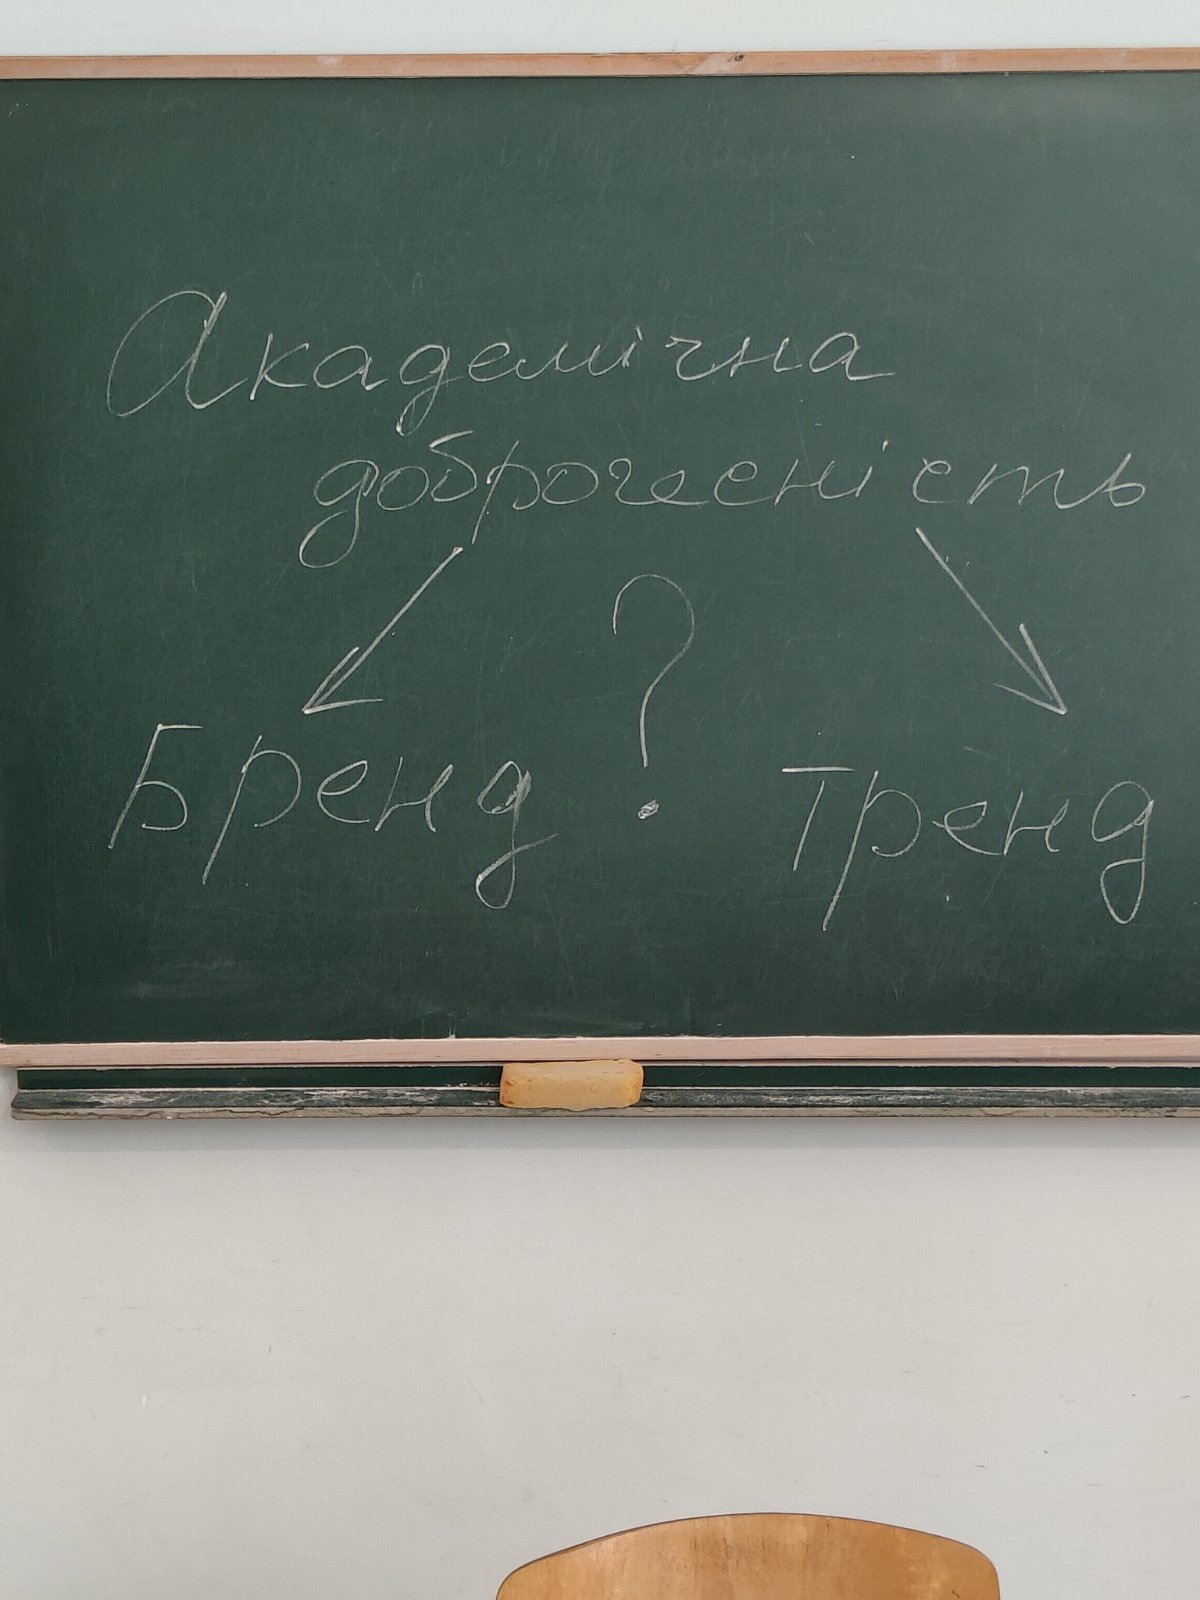 Академічна
доброчесність
?
Бренд Тренд